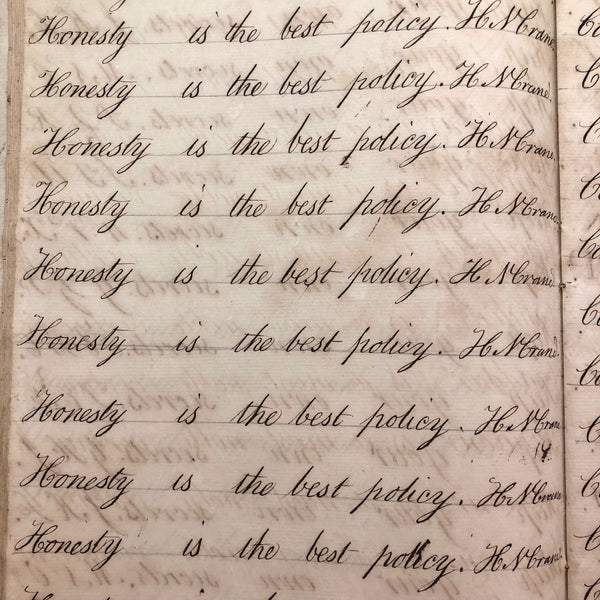 Honesty is the best policy. H N Crane.
Honesty is the best policy. H N Crane.
Honesty is the best policy. H N Crane.
Honesty is the best policy. H N Crane.
Honesty is the best policy. H N Crane
Honesty is the best policy. H N Crane
Honesty is the best policy. H N Crane
14
Honesty is the best policy. H N Crane
Honesty is the best policy. H N Crane